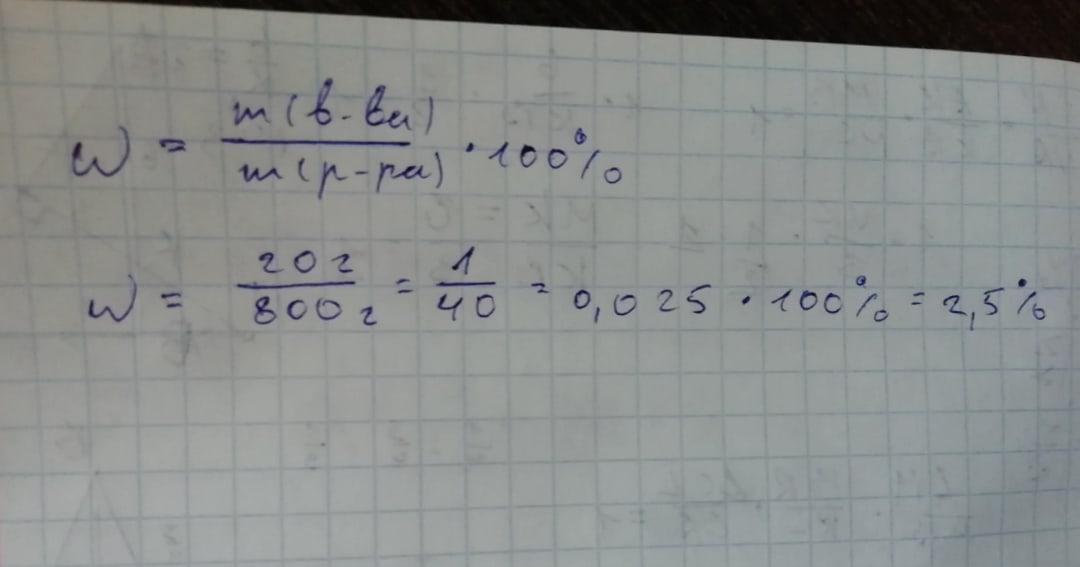 ω = m(в-ва) / m(р-ра) · 100%
ω = 20г / 800г = 1 / 40 = 0,025 · 100% = 2,5%